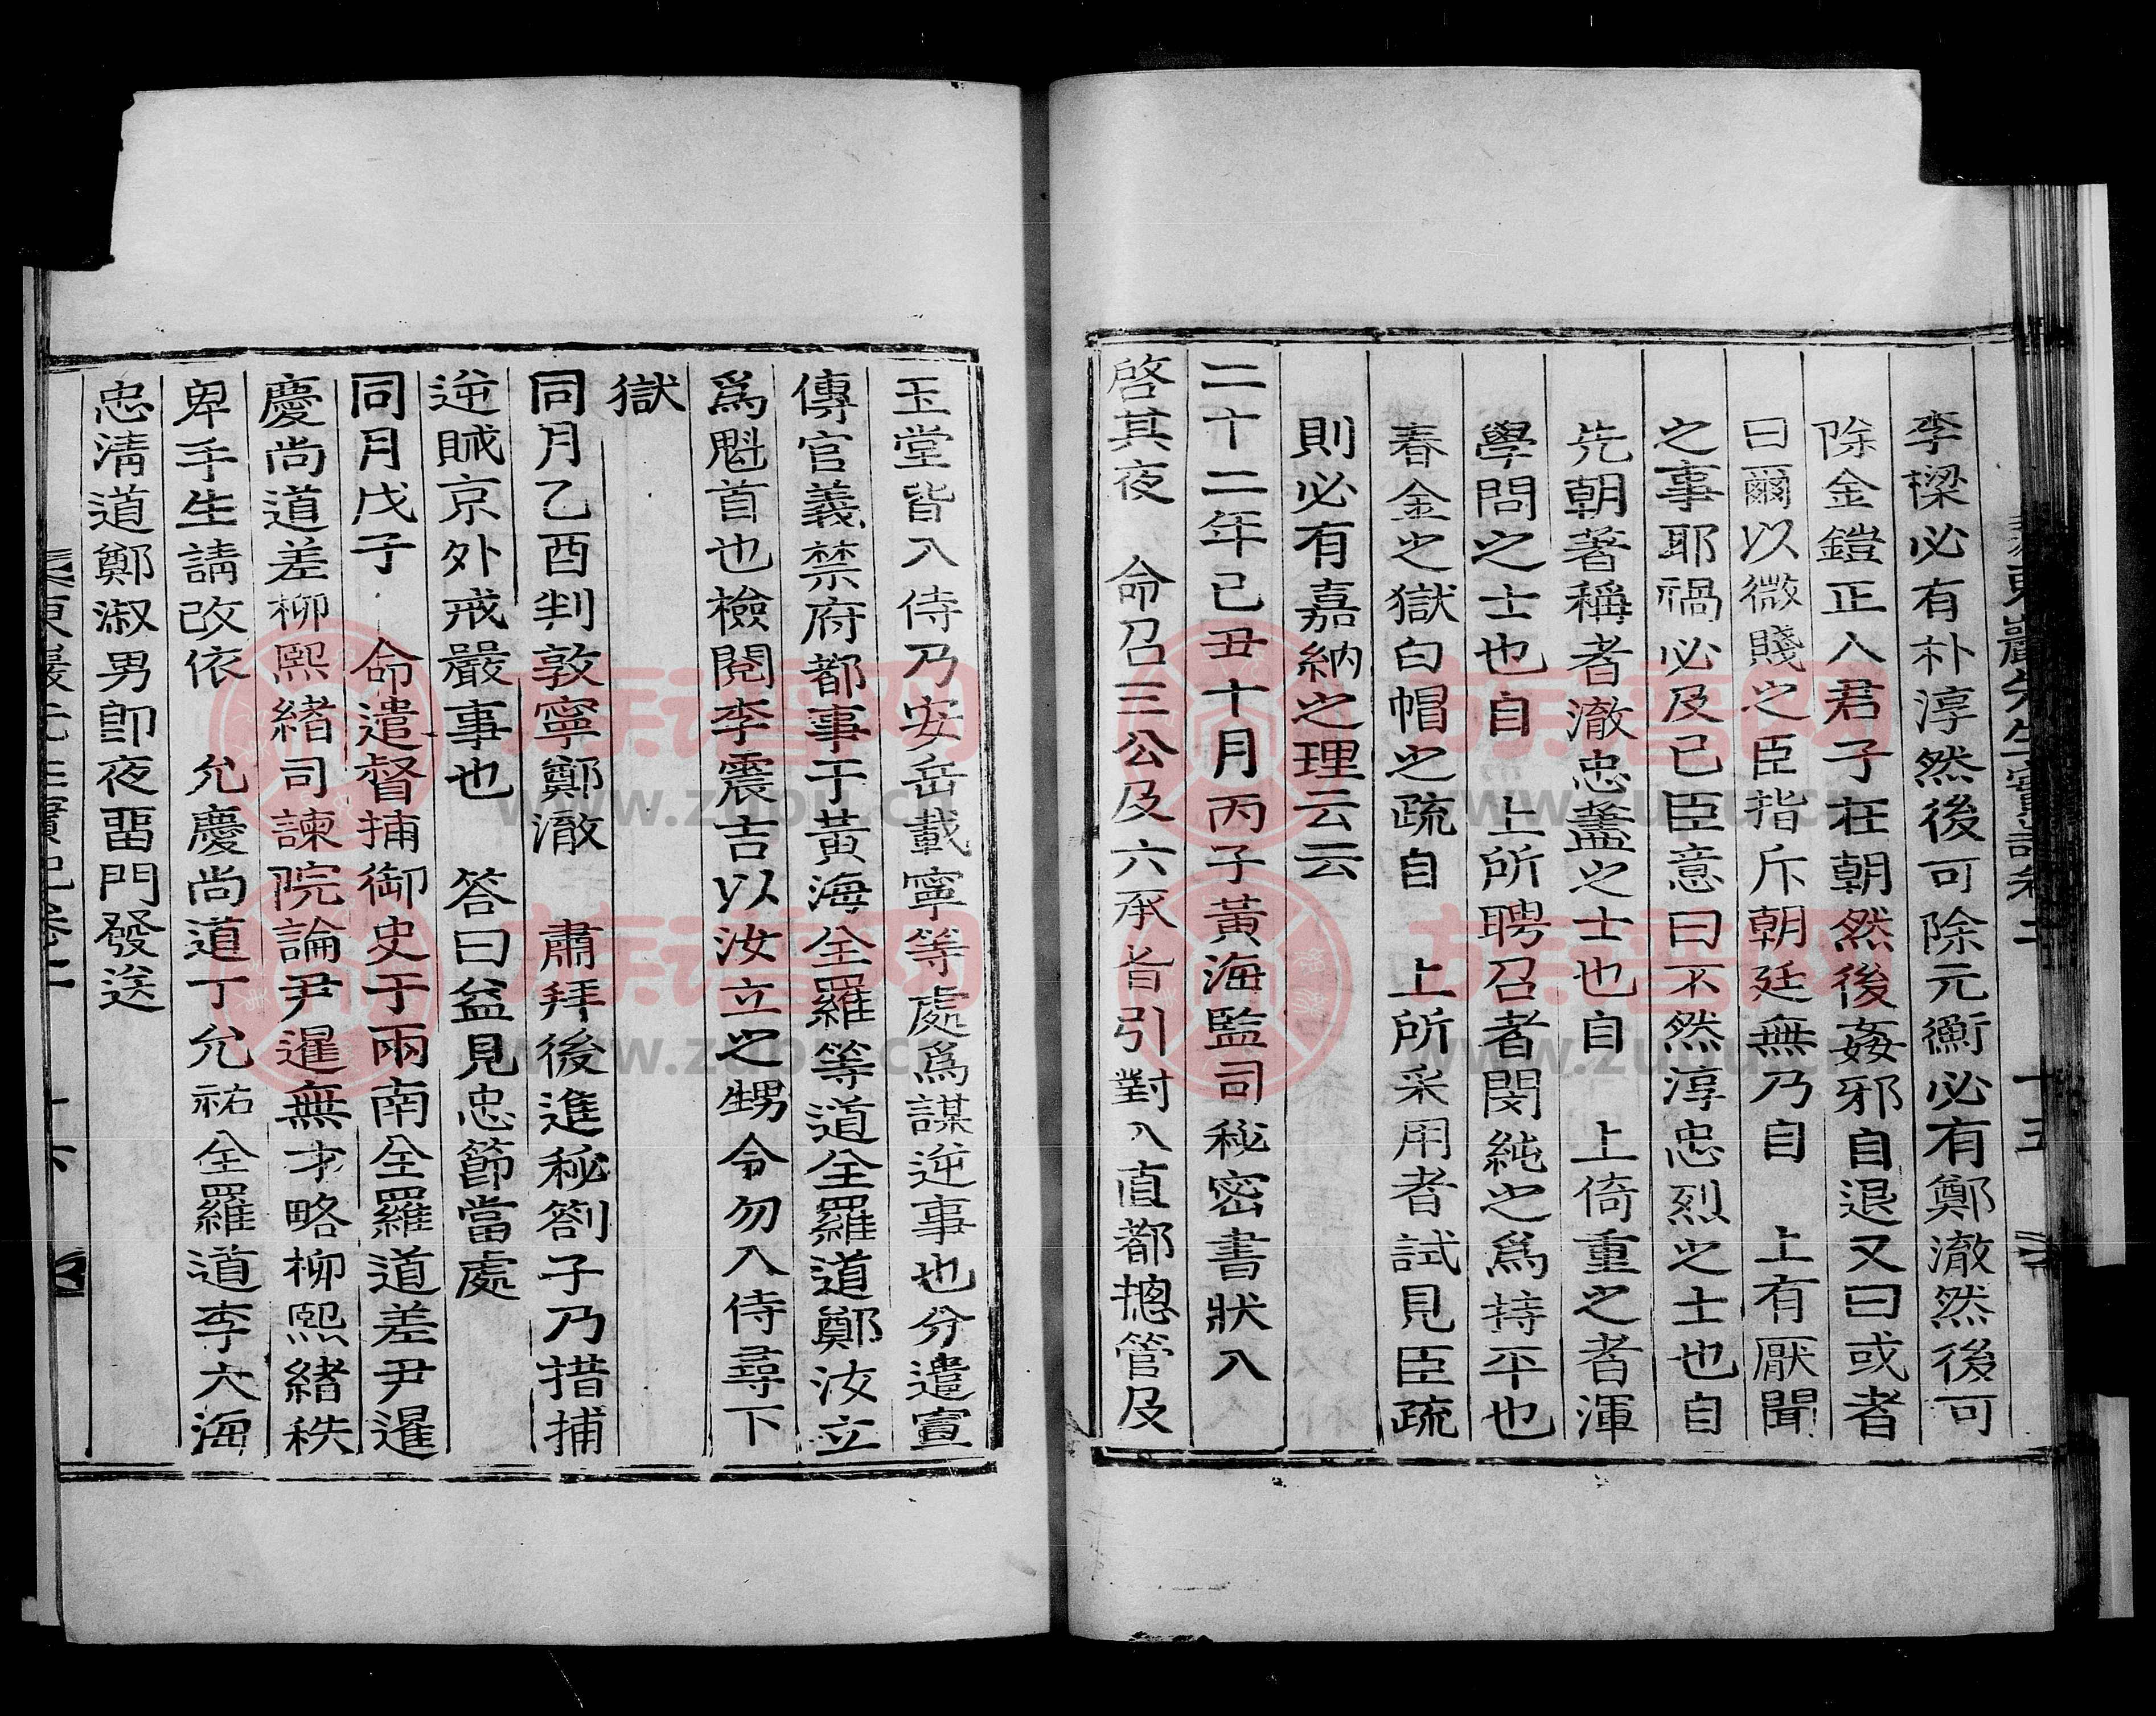 李樑必有朴淳然後可除元衡必有鄭澈然後可
除金鎧正人君子在朝然後姦邪自退又曰或者
曰爾以微賤之臣指斥朝廷無乃自 上有厭聞
之事耶禍必及已臣意曰不然淳忠烈之士也自
先朝著稱者澈忠蓋之士也自 上倚重之者渾
學問之士也自 上所聘召者閔純之爲持平也
春金之獄白帽之疏自 上所采用者試見臣疏
則必有嘉納之理云云
二十二年己丑十月丙子黃海監司秘密書狀入
啓其夜 命召三公及六承旨引對入直都摠管及
玉堂皆入侍乃安岳載寧等處爲謀逆事也分遣宣
傳官義禁府都事于黃海全羅等道全羅道鄭汝立
爲魁首也檢閱李震吉以汝立之甥令勿入侍尋下
獄
同月乙酉判敦寧鄭澈 肅拜後進秘劄子乃措捕
逆賊京外戒嚴事也 答曰益見忠節當處
同月戊子 命遣督捕御史于兩南全羅道差尹暹
慶尚道差柳熙緒司諫院論尹暹無才略柳熙緒秩
卑手生請改依 允慶尚道丁允祐全羅道李大海
忠清道鄭淑男卽夜畱門發送